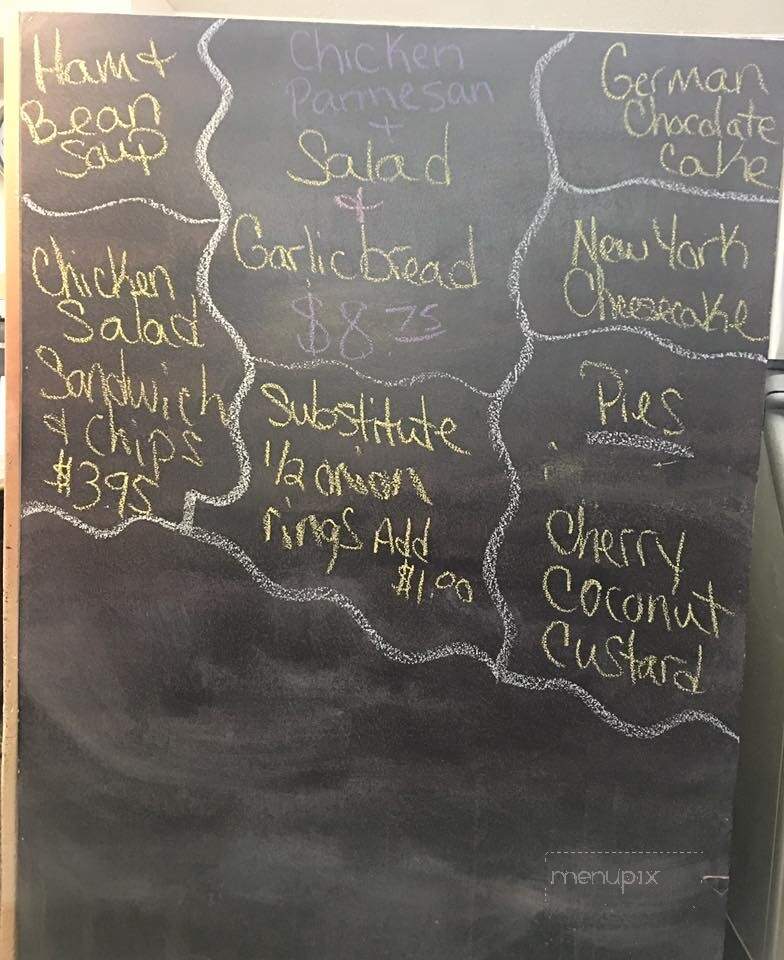 Ham +
Bean
Soup
Chicken
Salad
Sandwich
& Chips
$3.95
Chicken
Parmesan
+
Salad
&
Garlic bread
$8.75
Substitute
1/2 onion
rings Add
$1.00
German
Chocolate
Cake
New York
Cheesecake
Pies
Cherry
Coconut
Custard
menupix